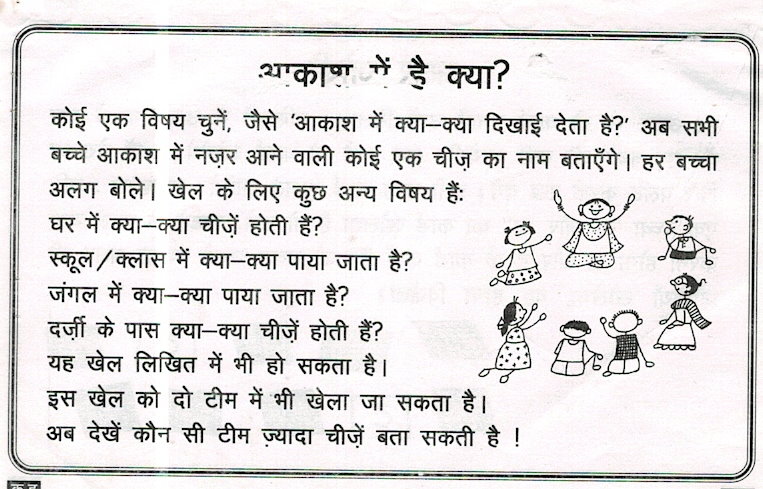 आकाश में है क्या?
कोई एक विषय चुनें, जैसे 'आकाश में क्या–क्या दिखाई देता है?' अब सभी
बच्चे आकाश में नज़र आने वाली कोई एक चीज़ का नाम बताएँगे। हर बच्चा
अलग बोले। खेल के लिए कुछ अन्य विषय हैं:
घर में क्या–क्या चीज़ें होती हैं?
स्कूल/क्लास में क्या–क्या पाया जाता है?
जंगल में क्या–क्या पाया जाता है?
दर्ज़ी के पास क्या–क्या चीज़ें होती हैं?
यह खेल लिखित में भी हो सकता है।
इस खेल को दो टीम में भी खेला जा सकता है।
अब देखें कौन सी टीम ज़्यादा चीज़ें बता सकती है !